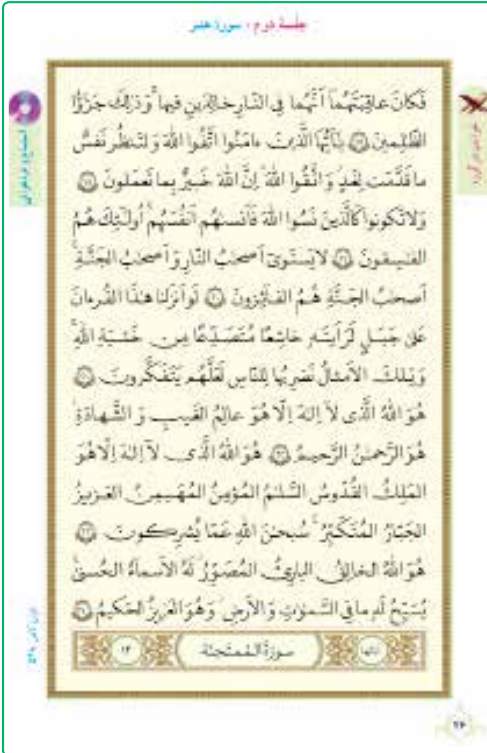 جلسهٔ دوم : سورهٔ حشر
فَكانَ عاقِبَتَهُما أَنَّهُما فِي النّارِ خالِدَينِ فيها ۚ وَ ذٰلِكَ جَزٰٓؤُا
الظّٰلِمينَ ﴿١٧﴾ يٰٓأَيُّهَا الَّذينَ ءامَنُوا اتَّقُوا اللّٰهَ وَ لتَنظُر نَفسٌ
ما قَدَّمَت لِغَدٍ ۖ وَ اتَّقُوا اللّٰهَ ۚ إِنَّ اللّٰهَ خَبيرٌ بِما تَعمَلونَ ﴿١٨﴾
وَلا تَكونوا كَالَّذينَ نَسُوا اللّٰهَ فَأَنسٰىهُم أَنفُسَهُم ۚ أُولٰٓئِكَ هُمُ
الفٰسِقونَ ﴿١٩﴾ لا يَستَوىٓ أَصحٰبُ النّارِ وَ أَصحٰبُ الجَنَّةِ ۚ
أَصحٰبُ الجَنَّةِ هُمُ الفآئِزونَ ﴿٢٠﴾ لَو أَنزَلنا هٰذَا القُرءانَ
عَلىٰ جَبَلٍ لَرَأَيتَهُ خاشِعًا مُتَصَدِّعًا مِن خَشيَةِ اللّٰهِ ۚ
وَ تِلكَ الأَمثالُ نَضرِبُها لِلنّاسِ لَعَلَّهُم يَتَفَكَّرونَ ﴿٢١﴾
هُوَ اللّٰهُ الَّذى لآ إِلٰهَ إِلّا هُوَ عالِمُ الغَيبِ وَ الشَّهادَةِ ۖ
هُوَ الرَّحمٰنُ الرَّحيمُ ﴿٢٢﴾ هُوَ اللّٰهُ الَّذى لآ إِلٰهَ إِلّا هُوَ
المَلِكُ القُدّوسُ السَّلٰمُ المُؤمِنُ المُهَيمِنُ العَزيزُ
الجَبّارُ المُتَكَبِّرُ ۚ سُبحٰنَ اللّٰهِ عَمّا يُشرِكونَ ﴿٢٣﴾
هُوَ اللّٰهُ الخالِقُ البارِئُ المُصَوِّرُ ۖ لَهُ الأَسمآءُ الحُسنىٰ ۚ
يُسَبِّحُ لَهُ ما فِي السَّمٰوٰتِ وَ الأَرضِ ۖ وَ هُوَ العَزيزُ الحَكيمُ ﴿٢٤﴾
سورَةُ المُمتَحِنَة
١٣
٢۶